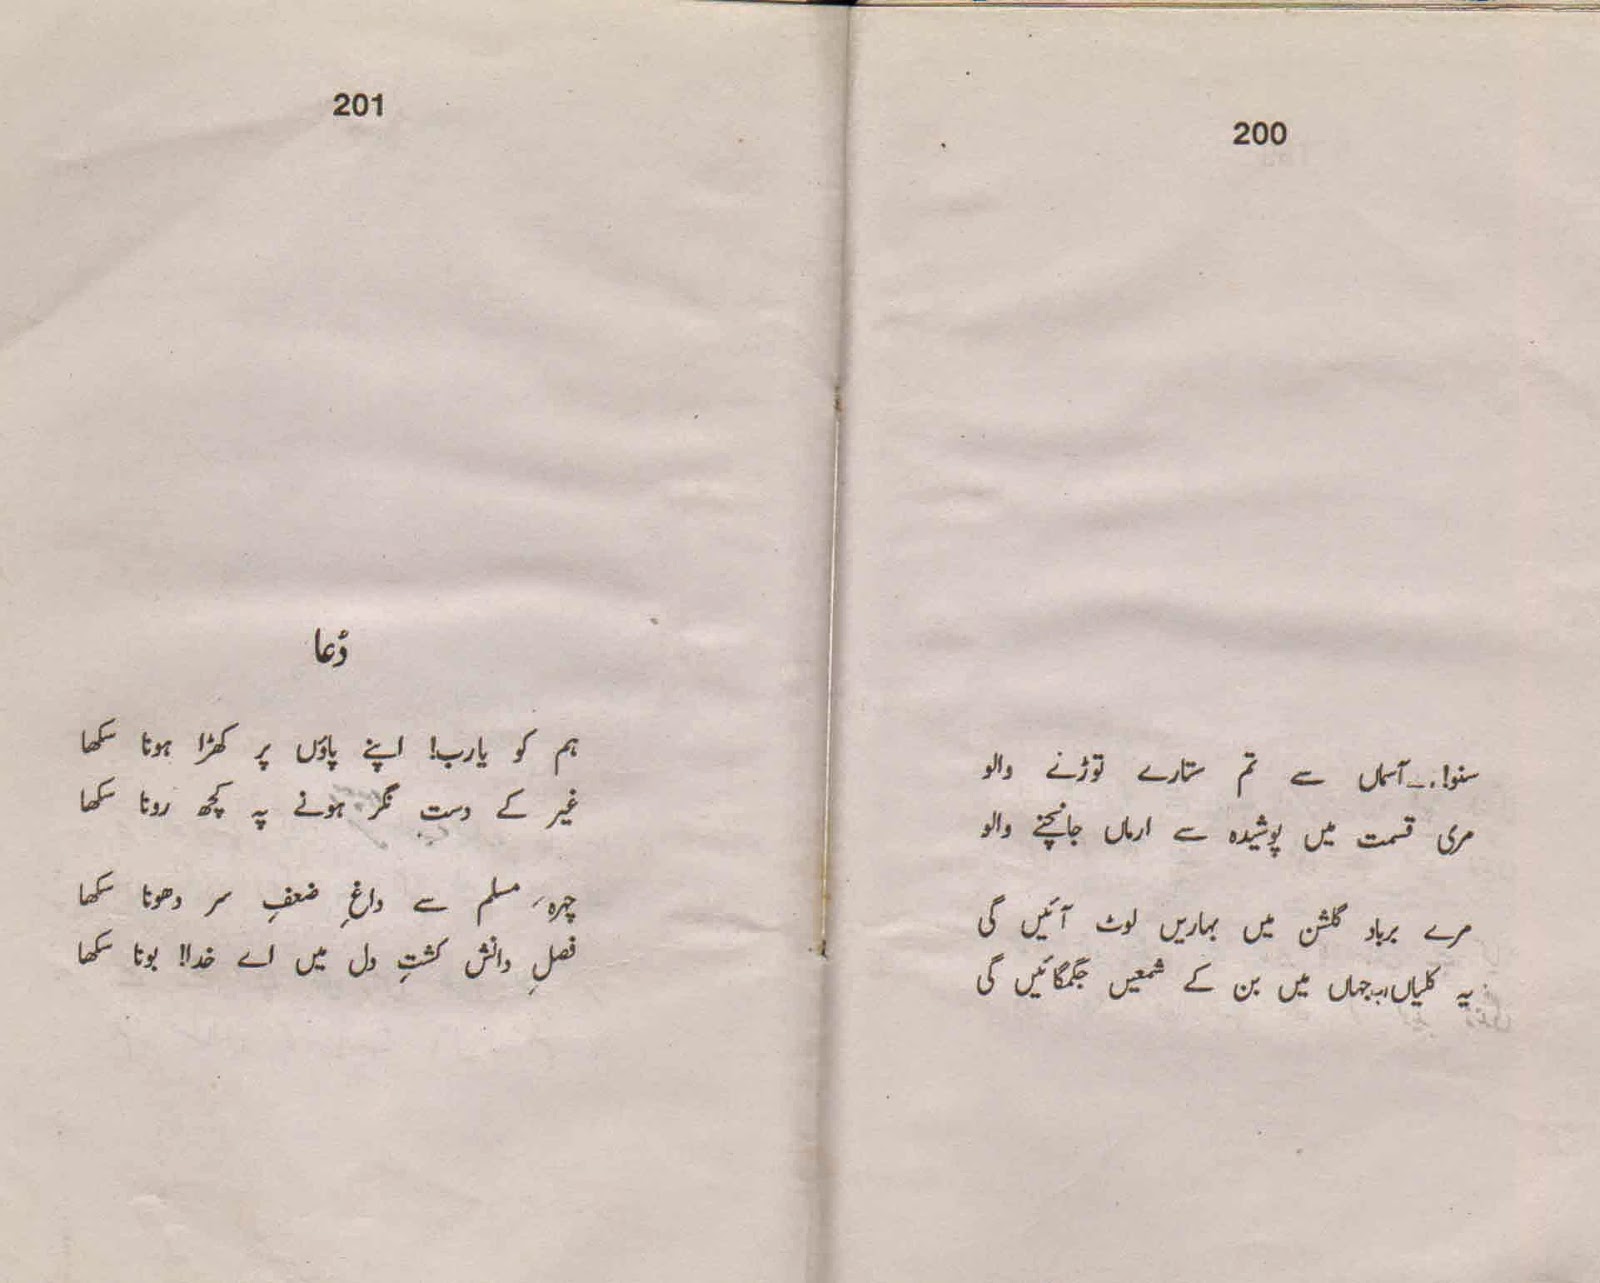 200
سنو!.... آسماں سے تم ستارے توڑنے والو
مری قسمت میں پوشیدہ سے ارماں جانچنے والو
مرے برباد گلشن میں بہاریں لوٹ آئیں گی
یہ کلیاں اب جہاں میں بن کے شمعیں جگمگائیں گی
201
دُعا
ہم کو یارب! اپنے پاؤں پر کھڑا ہونا سکھا
غیر کے دست نگر ہونے پہ کچھ رونا سکھا
چہرہ مسلم سے داغِ ضعفِ سر دھونا سکھا
فصلِ دانش کشتِ دل میں اے خدا! بونا سکھا